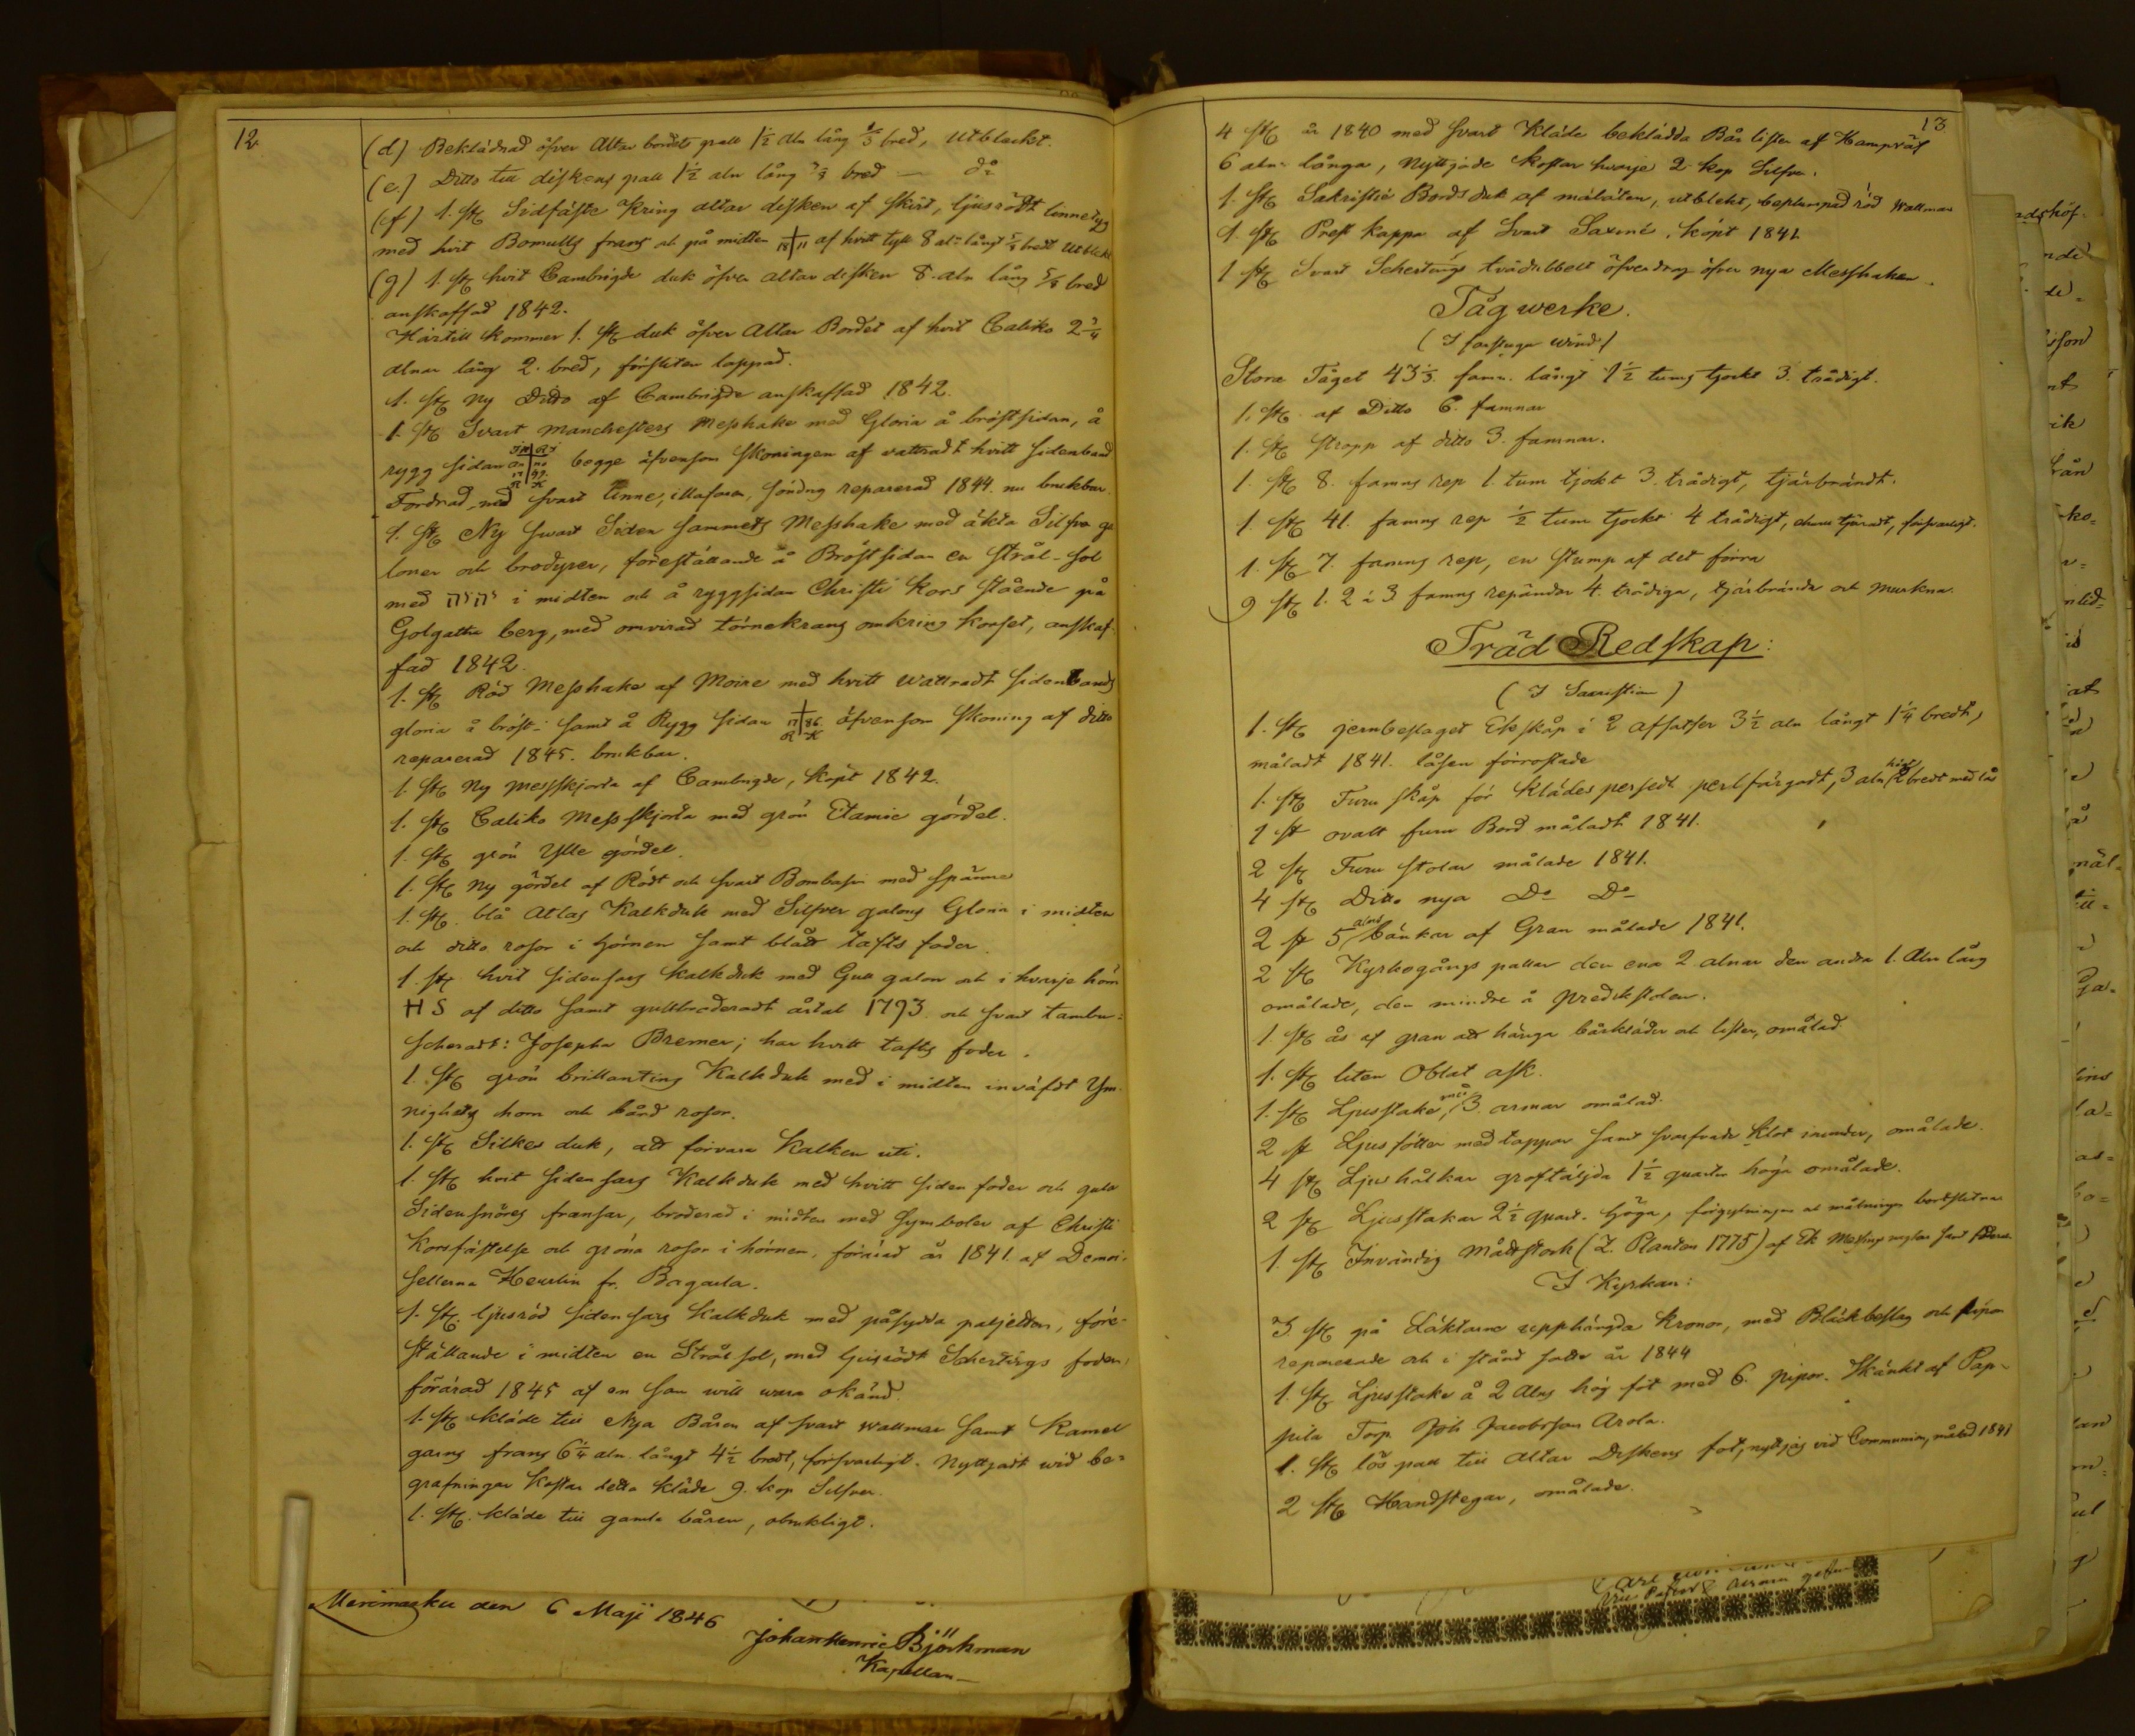 12.
(d) Beklädnad öfver Altar bordets pall 1½ Aln lång ⅓ bred, utbleckt.
(e.) Ditto till diskens pall 1½ aln lång ⅔ bred — do
(f) 1. St. Sidfäste kring altar disken af skirt, ljusrödt linnetyg
med hvit Bomulls frans och på midten af hvitt tyll 8 aln långt bredt utblekt
(g) 1. St. hvit Cambrigde duk öfver altar disken 8. aln lång 5/8 bred
anskaffad 1842.
Härtill kommer 1. St. duk öfver Altar Bordet af hvit Caliko 2¾
alnar lång 2. bred, försliten lappad.
1. St. ny Ditto af Cambrigde anskaffad 1842.
1. St. Svart Manchesters Messhake med Gloria å bröstsidan, å
rygg sidan begge äfvensom skoningen af vattradt hvitt sidenband
Fordrad med svart linne, illafaren, söndrig reparerad 1844. nu brukbar.
1. St. Ny svart Siden sammets Messhake med äkta Silfver ga
loner och brodyrer, föreställande å Bröstsidan en strål-sol
med יהוה i midten och å ryggsidan Christi Kors stående på
Golgatha berg, med omvirad törnekrans omkring korset, anskaf-
fad 1842.
1. St. Röd Messhake af Moire med hvitt wattradt sidenbands
gloria å bröst- samt å Rygg sidan 17 86 R K äfvensom skoning af ditto
reparerad 1845. brukbar.
1. St. Ny messskjorta af Cambrigde, köpt 1842.
1. St. Caliko Messskjorta med grön Etamie gördel.
1. St. grön Ylle gördel.
1. St. ny gördel af Rödt och svart Bombasin med spänne
1. St. blå Atlas Kalkduk med Silfver galons Gloria i midten
och ditto rosor i hörnen samt blått tafts foder.
1. St. hvit sidensars kalkduk med Gull galon och i hvarje hörn
HS af ditto samt gullbroderadt årtal 1793. och svart tambu-
scheradt: Josepha Bremer; har hvitt tafts foder.
1. St. grön brillantins Kalkduk med i midten inväfdt Ym-
nighets horn och bård rosor.
1. St. Silkes duk, att förvara Kalken uti.
1. St. hvit siden sars Kalkduk med hvitt siden foder och gula
Sidensnöres fransar, broderad i midten med Symboler af Christi
Korsfästelse och gröna rosor i hörnen, förärad år 1841 af Demoi-
sellerna Heurlin fr. Bagarla.
1. St. ljusröd siden sars Kalkduk med påsydda paljetter, före-
ställande i midten en Strål sol, med ljusrödt Schertings foder,
förärad 1845 af en som will wara okänd.
1. St. kläde till Nya Båren af svart wallmar samt Kamel
garns frans 6¼ aln. långt 4½ bredt, försvarligt. Nyttjadt wid be-
grafningar kostar detta kläde 9. kop Silfver.
1. St. kläde till gamla båren, obrukligt.
Merimasku den 6 Maji 1846
Johan Henric Björkman
Kapellan
13
4 St. år 1840 med svart Kläde beklädda Bår lister af
6 aln. långa, Nyttjade kostar hvarje 2 kop Silfver.
1. St. Sakristie Bords duk af utblekt, röd Wallmar
1. St. Prest kappa af Svart Saxoné, köpt 1841.
1 St. Svart Schertings tvådubbelt öfverdrag öfver nya Messhaken.
Tågwerke.
(I farstuga wind)
Stora Tåget 43⅓. famn. långt 1½ tums tjockt 3. trådigt.
1. St. af Ditto 6. famnar
1. St. Stropp af ditto 3. famnar.
1. St. 8. famns rep 1. tum tjockt 3. trådigt, tjärbrändt.
1. St. 41. famns rep ½ tum tjockt 4 trådigt, försvarligt.
1. St. 7. famns rep, en stump af det förra
9 St. 1. 2 à 3 famns repändar 4. trådiga, tjärbrända och murkna.
Träd Redskap:
(I Sacristian)
1. St. jernbeslaget Ekskåp i 2 afsatser 3½ aln långt 1¼ bredt,
måladt 1841. låsen förrostade
1. St. Furu skåp för klädes persedl. perlfärgadt, 3 aln högt 2 bredt med lås
1 St ovalt furu Bord måladt 1841.
2 St. Furu stolar målade 1841.
4 St. Ditto nya Do Do
2 St 5 alns bänkar af Gran målade 1841.
2 St. Kyrkogångs pallar den ena 2 alnar den andra 1. Aln lång
omålade, den mindre å predikstolen.
1 St. ås af gran att hänga bårkläder och lister, omålad.
1. St. liten Oblat ask.
1. St. Ljusstake, 3. armar omålad.
2 St Ljus fötter med tappar samt svarfvade klot inunder, omålade.
4 St. Ljushålkar groftäljda 1½ quarter höga omålade.
2 St. Ljusstakar 2½ quart. höga, förgyllningen och målningen bortslitna
1. St. Invändig Måttstock (Z. Planton 1775) af Ek
I Kyrkan:
3 St. på Läktaren upphängda kronor, med Bläckbeslag och pipor
reparerade och i stånd satte år 1844
1. St. Ljusstake å 2 Alns hög fot med 6. pipor. Skänkt af Pap-
pila Torp. Joh Jacobsson Arola.
1. St. lös pall till Altar Diskens fot, nyttjas vid Communion, målad 1841
2 St. Handstegar, omålade.